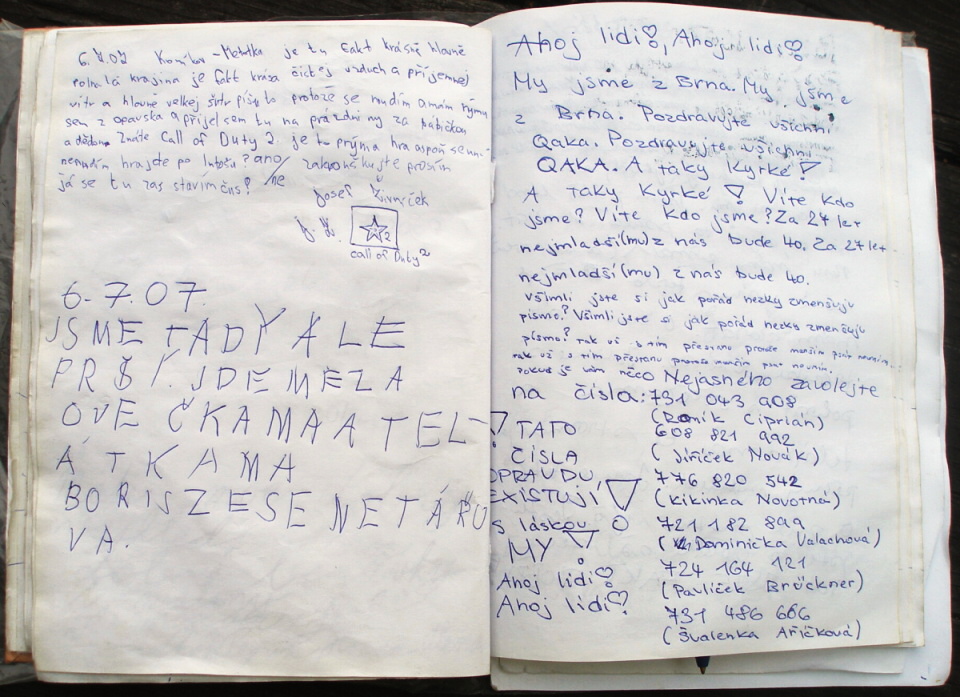 6.7.07 Komňov-Hetvlka je tu fakt krásně hlavně
polní krajina je fakt krása čistej vzduch a příjemnej
vítr a hlavně velkej píšu to protože se nudím a mám rýmu
sem z opavska a přijel sem tu na prázdniny za babičkou
a dědou. Znáte Call of Duty 2. je to prýma hra aspoň se
nenudím hrajde po Intošu? ano/ne zakroužkujte prosím
já se tu zas stavím čus?
Josef Živníček
J. Ž.
2
call of Duty 2
6.7.07.
JSME TADY ALE
PRŠÍ. JDEME ZA
OVEČKAMA A TEL-
ÁTKAMA
BORIS ZE SENETÁŘO
VA.
Ahoj lidi!, Ahoj lidi!
My jsme z Brna. My jsme
z Brna. Pozdravujte všichni
Qaka. Pozdravujte všichni
QAKA. A taky Kyrké!
A taky Kyrké! Víte kdo
jsme? Víte kdo jsme? Za 27 let
nejmladší(mu) z nás bude 40. Za 27 let
nejmladší(mu) z nás bude 40.
Všimli jste si jak pořád hezky zmenšuju
písmo? Všimli jste si jak pořád hezky zmenšuju
písmo? tak už s tím přestanu protože menším psát neumím.
tak už s tím přestanu protože menším psát neumím.
Pokud je vám něco Nejasného zavolejte
na čísla: 731 043 908
(Romík Ciprián)
! TATO 608 821 992
ČÍSLA (Jiříček Novák)
OPRAVDU 776 820 542
EXISTUJÍ! (Kikinka Novotná)
s láskou 721 182 899
MY! (Dominička Valachová)
Ahoj lidi! 724 164 121
Ahoj lidi! (Pavlíček Brückner)
731 486 666
(Švalenka Aříčková)